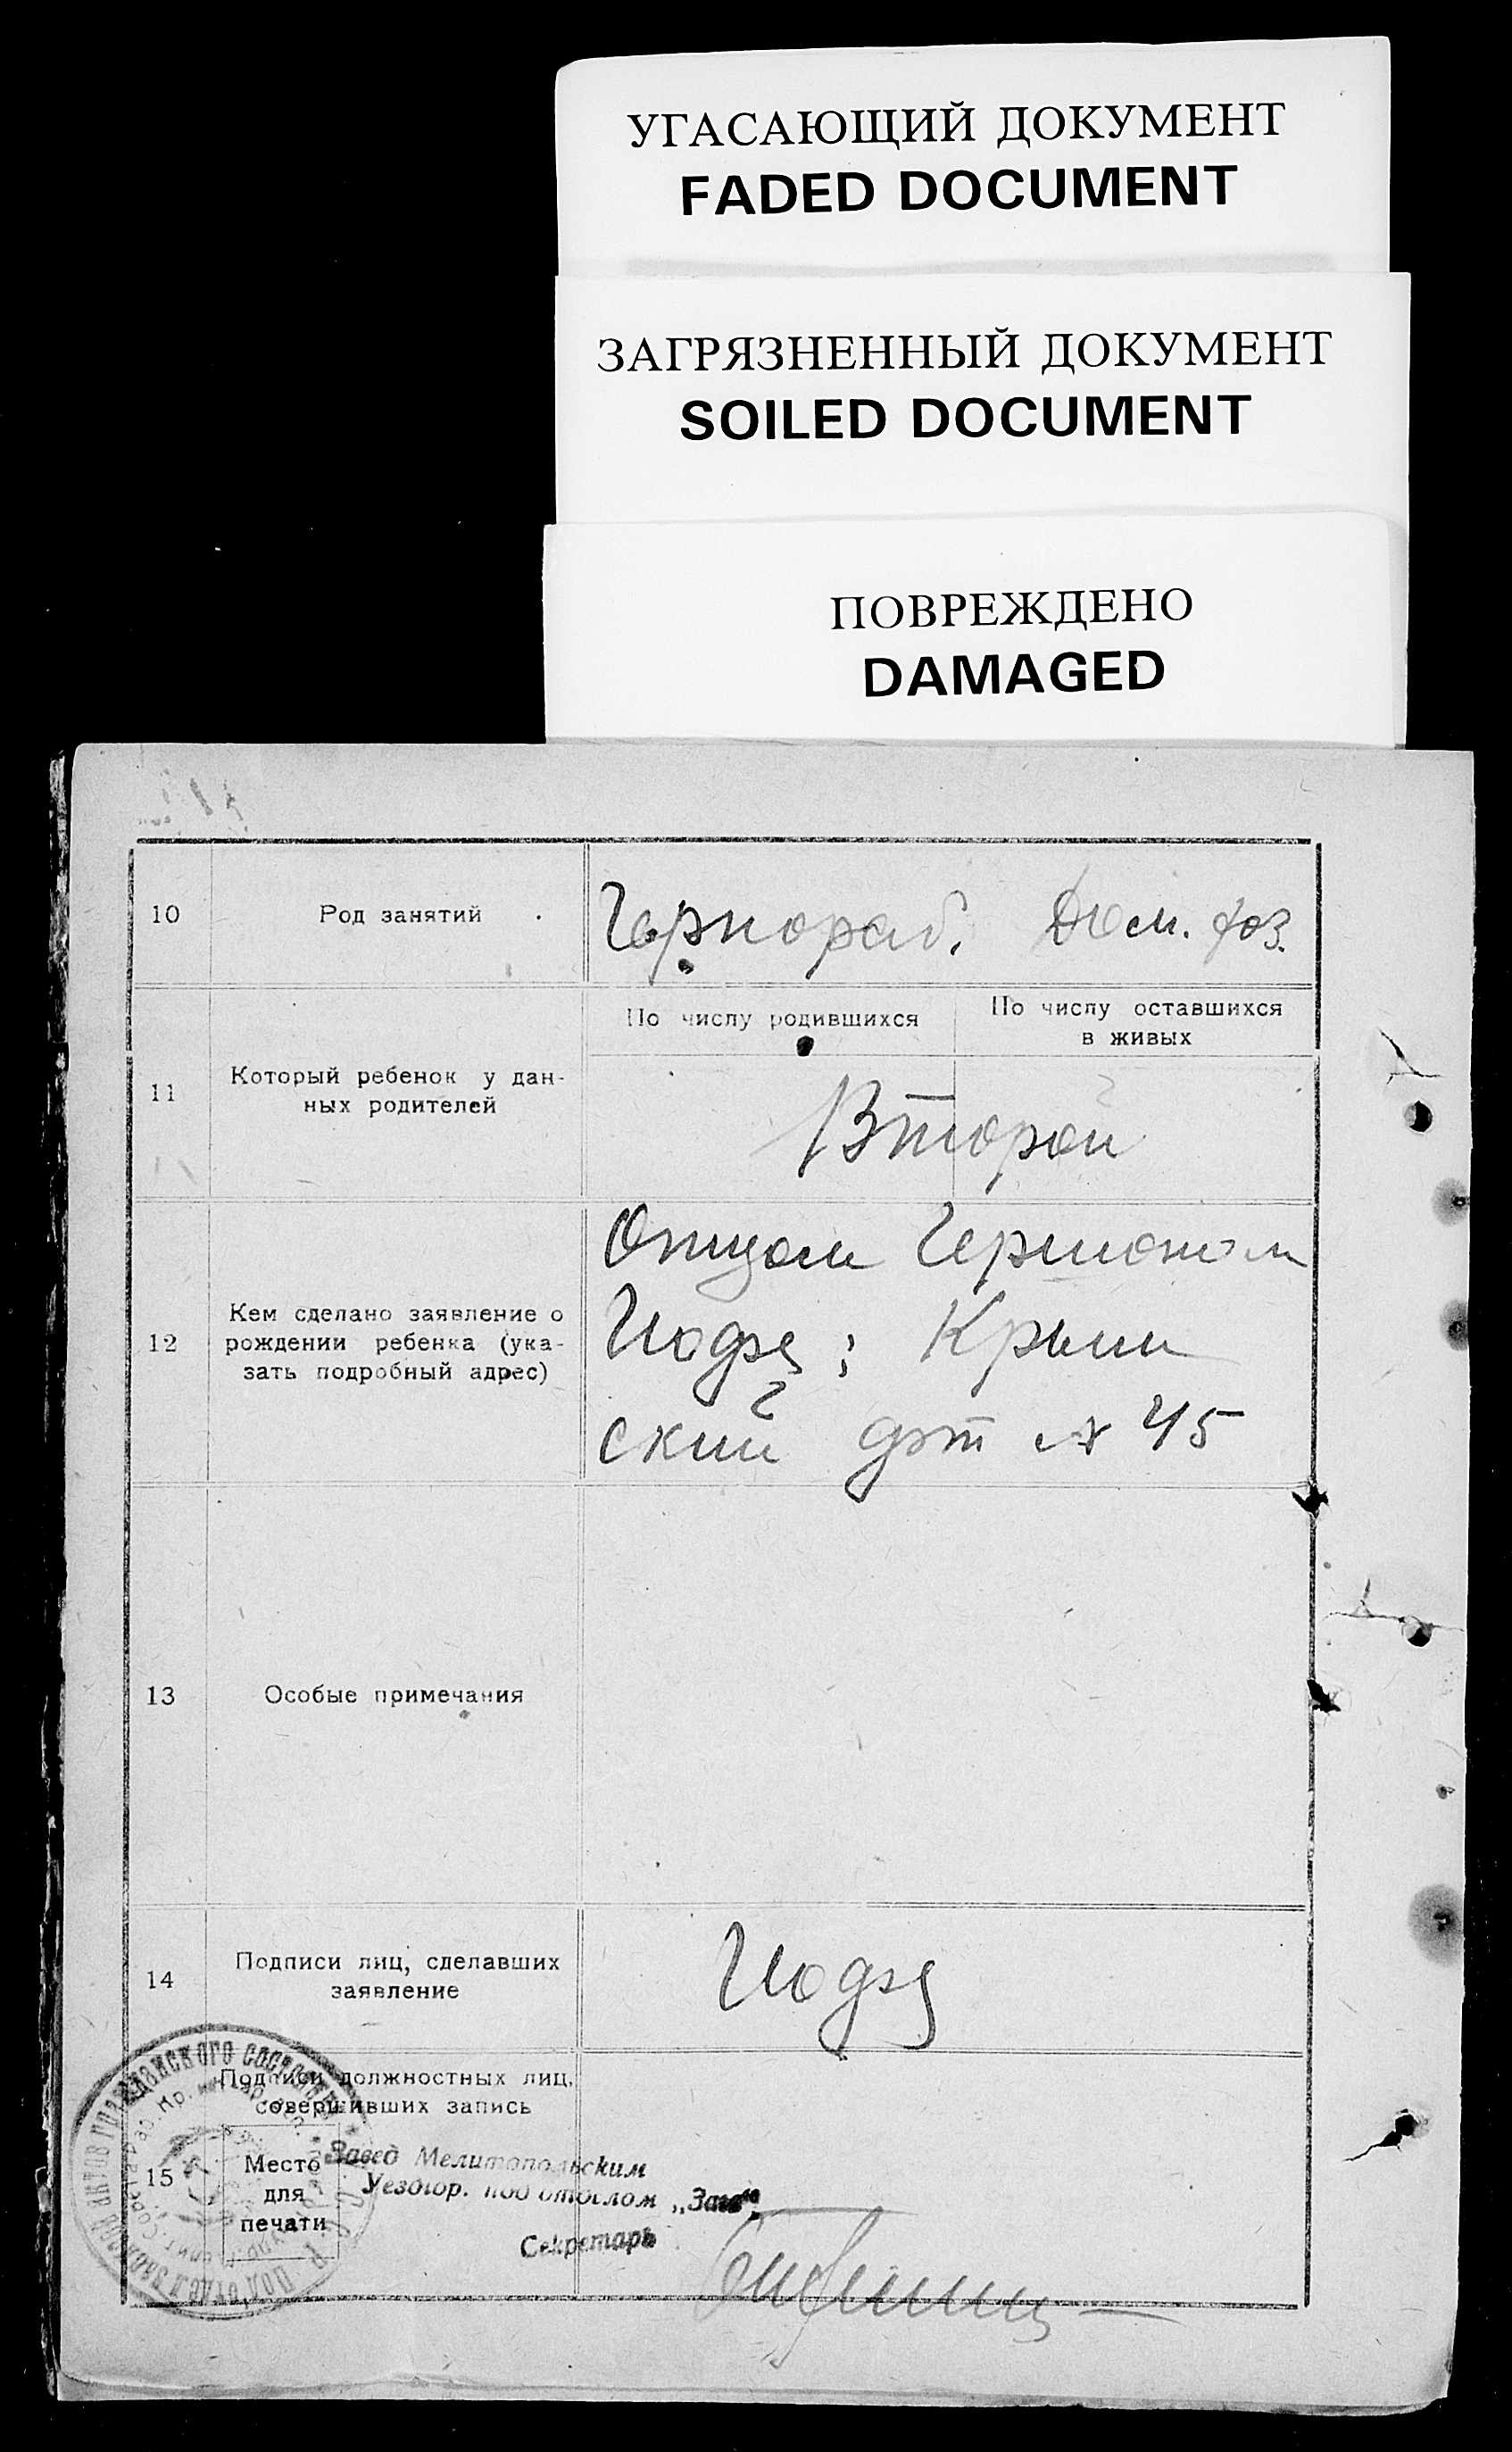 УГАСАЮЩИЙ ДОКУМЕНТ
FADED DOCUMENT
ЗАГРЯЗНЕННЫЙ ДОКУМЕНТ
SOILED DOCUMENT
ПОВРЕЖДЕНО
DAMAGED
10
Род занятий
Чернораб. Дом. хоз.
11
Который ребенок у дан-
ных родителей
По числу родившихся
По числу оставшихся
в живых
Второй
12
Кем сделано заявление о
рождении ребенка (ука-
зать подробный адрес)
Отцом
Крым
ский № 45
13
Особые примечания
14
Подписи лиц, сделавших
заявление
15
Подписи должностных лиц,
совершивших запись
Место
для
печати
Завед Мелитопольским
Уездгор. подотделом „Загс“
Секретарь